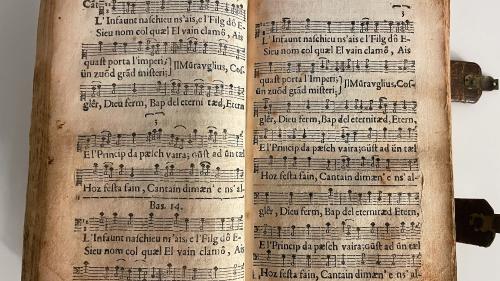 Cãt
L'Infaunt naschieu ns'ais, e l'Filg dõ E-
Sieu nom col quæl El vain clamô, Ais
quast porta l'Imperi;
ün zuõd grãd misteri;
Müravglius, Cos-
glêr, Dieu ferm, Bap del eternitæd, Etern,
3
E l'Princip da pæsch vaira; güst ad ün tæl
Hoz festa fain, Cantain dimæn' e ns' al-
Bas. 14.
L'Infaunt naschieu ns'ais, e l'Filg dõ E-
Sieu nom col quæl El vain clamô, Ais
3
L'Infaunt naschieu ns'ais, e l'Filg dõ E-
Sieu nom col quæl El vain clamô, Ais
quast porta l'Imperi;
ün zuõd grãd misteri;
Müravglius, Cos-
glêr, Dieu ferm, Bap del eternitæd, Etern,
E l'Princip da pæsch vaira; güst ad ün tæl
Hoz festa fain, Cantain dimæn' e ns' al-
glêr, Dieu ferm, Bap del eternitæd Etern,
E l'Princip da pæsch vaira; güst ad ün tæl
Hoz festa fain, Cantain dimæn' e ns' al-